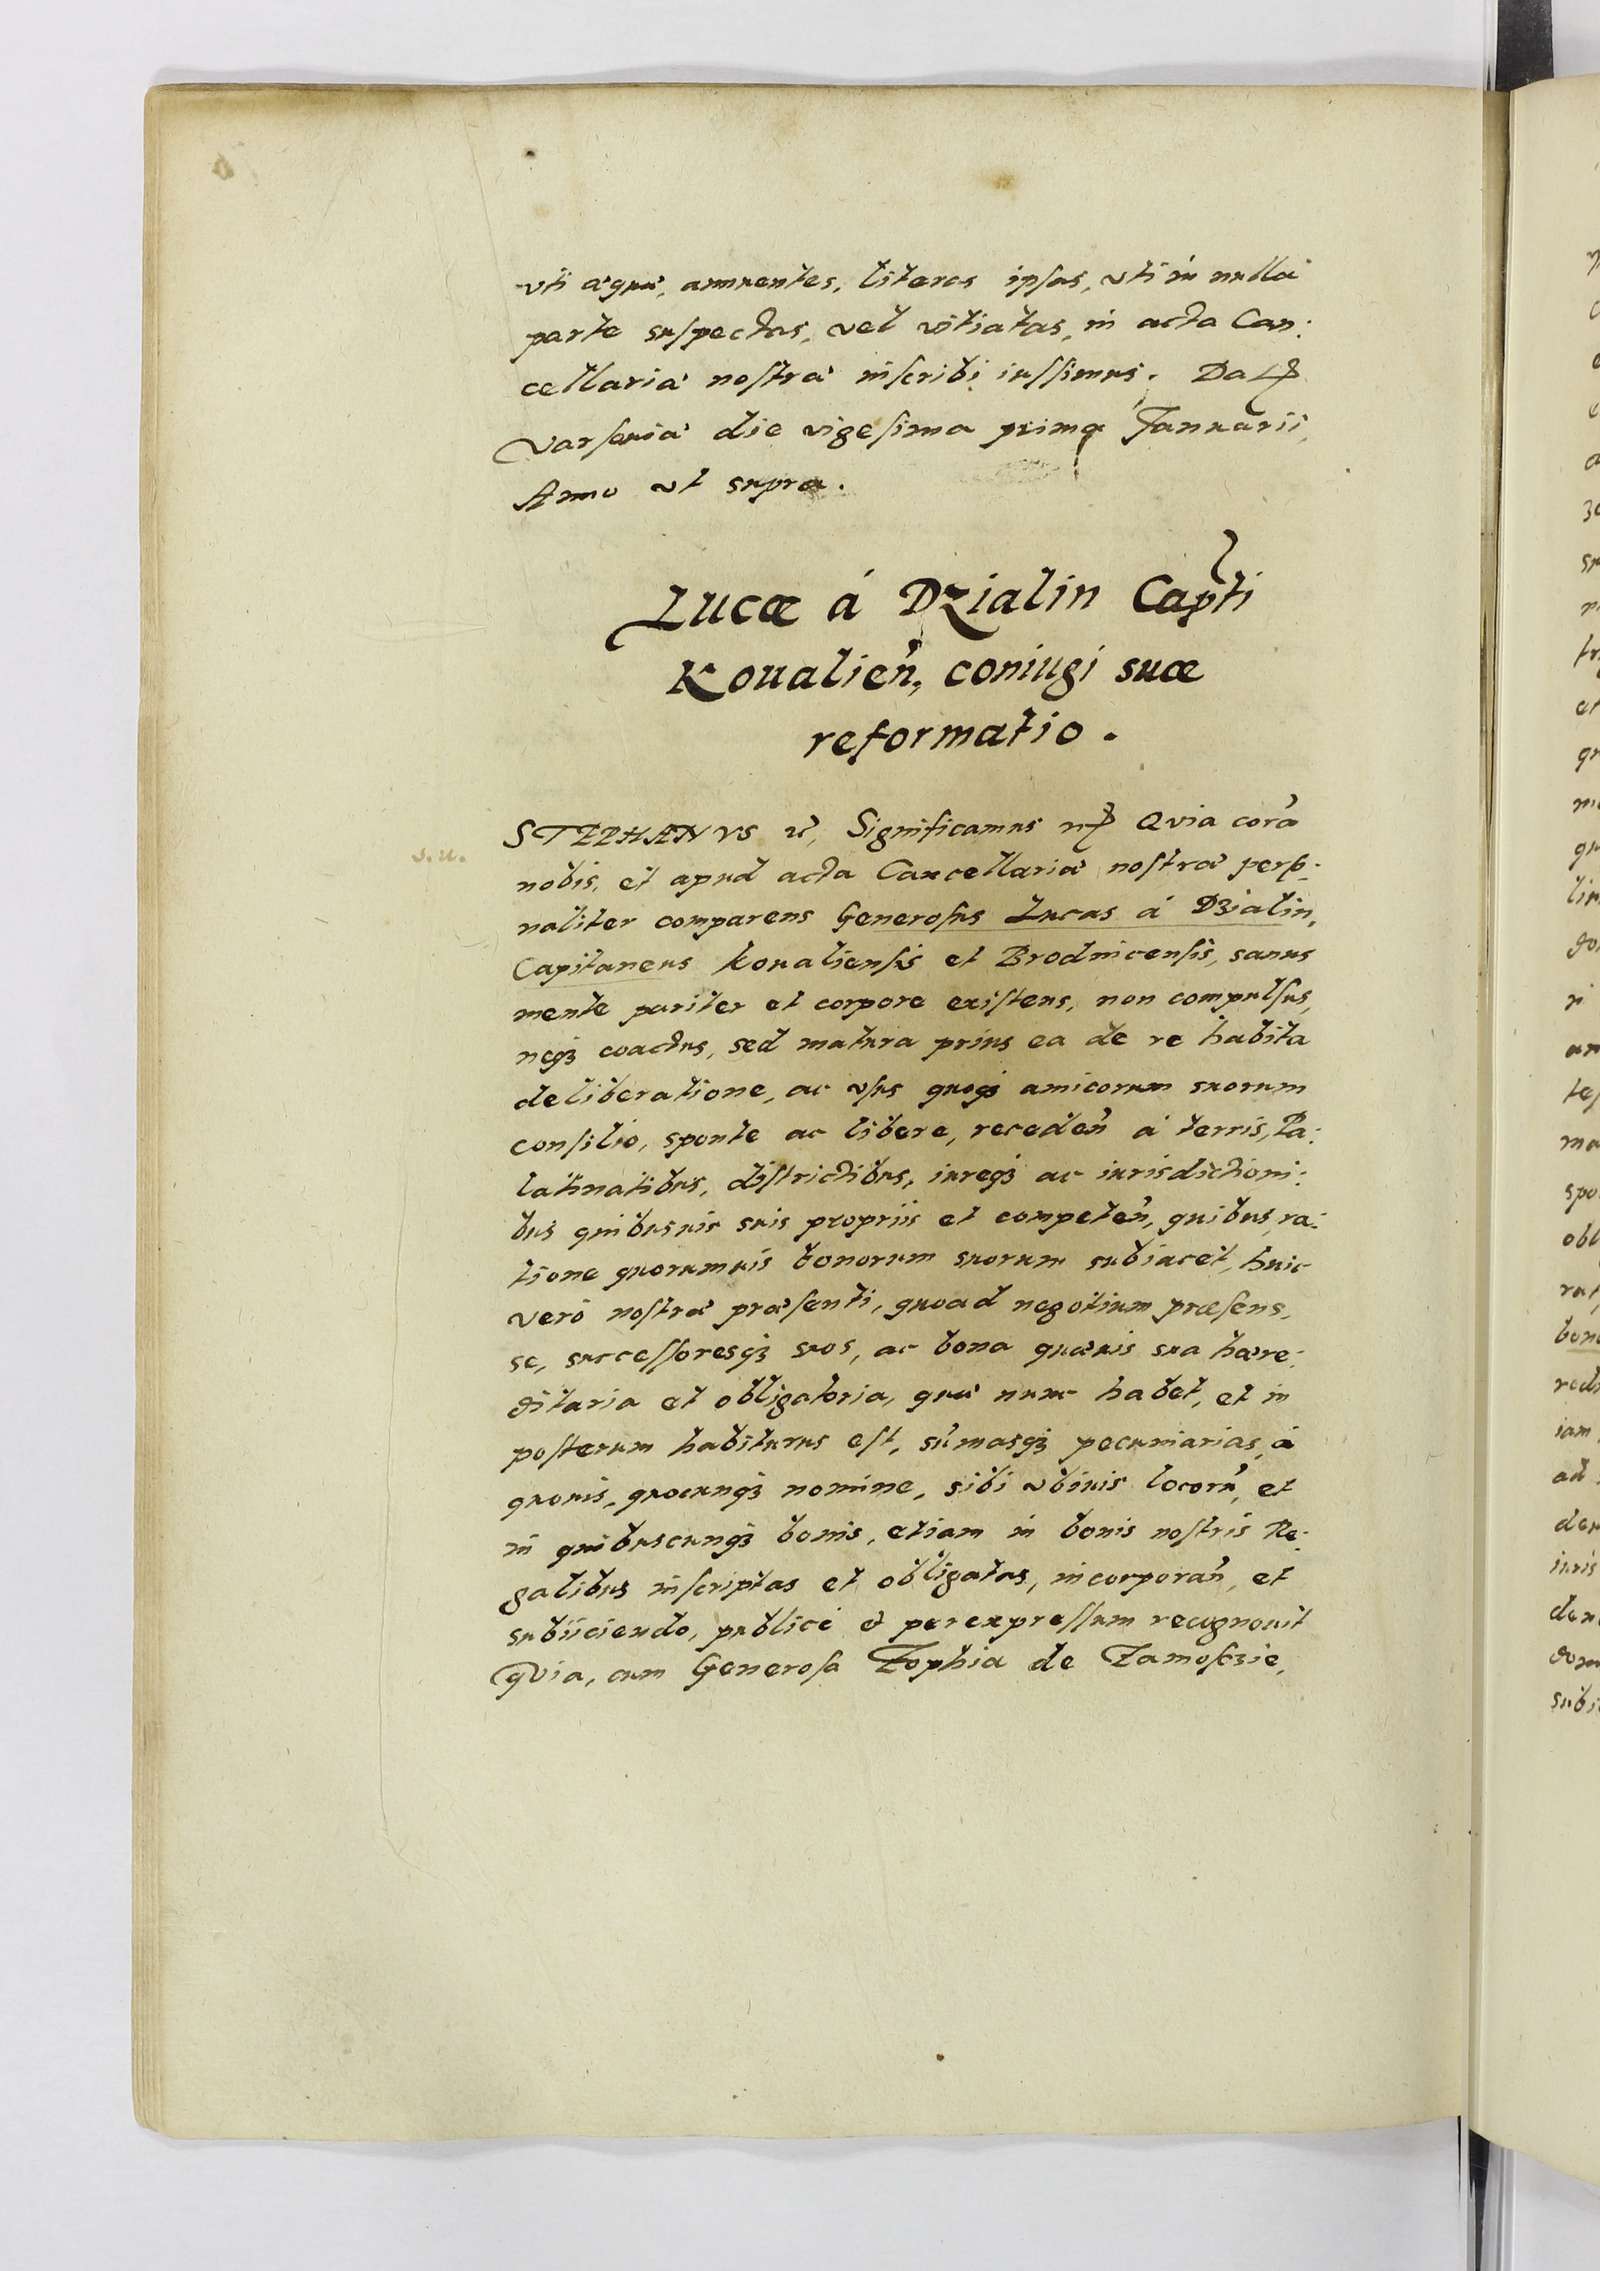 vti æquæ, annuentes, literas ipsas, vti in nulla
parte suspectas, vel vitiatas, in acta Can:
cellariæ nostræ inscribi iussimus. Dat
Varsauiæ die vigesima prima Januarii,
Anno ut supra.
Lucæ á Dzialin Capti
Koualien, coniugi suæ
reformatio.
STEPHANVS Significamus Quia corã
nobis, et apud acta Cancellariæ nostræ perso:
naliter comparens Generosus Lucas á Dzialin,
Capitaneus Koualiensis et Brodnicensis, sanus
mente pariter et corpore existens, non compulsus,
neqȝ coactus, sed matura prius ea de re habita
deliberatione, ac vsus quoqȝ amicorum suorum
consilio, sponte ac libere, receden á terris, Pa:
latinatibus, districtibus, iureqȝ ac iurisdictioni:
bus quibusuis suis propriis et competen, quibus, ra:
tione quorumuis bonorum suorum subiacet, huic
veró nostræ præsenti, quoad negotium præsens,
se, successoresqȝ suos, ac bona quæuis sua hære:
ditaria et obligatoria, quæ nunc habet, et in
posterum habiturus est, sũmasqȝ pecuniarias, á
quouis, quocunqȝ nomine, sibi vbiuis locorũ, et
in quibuscunqȝ bonis, etiam in bonis nostris Re:
galibus inscriptas et obligatas, incorporan, et
subiiciendo, publicé & per expressum recognouit
Quia, cum Generosa Zophia de Zamosczie,